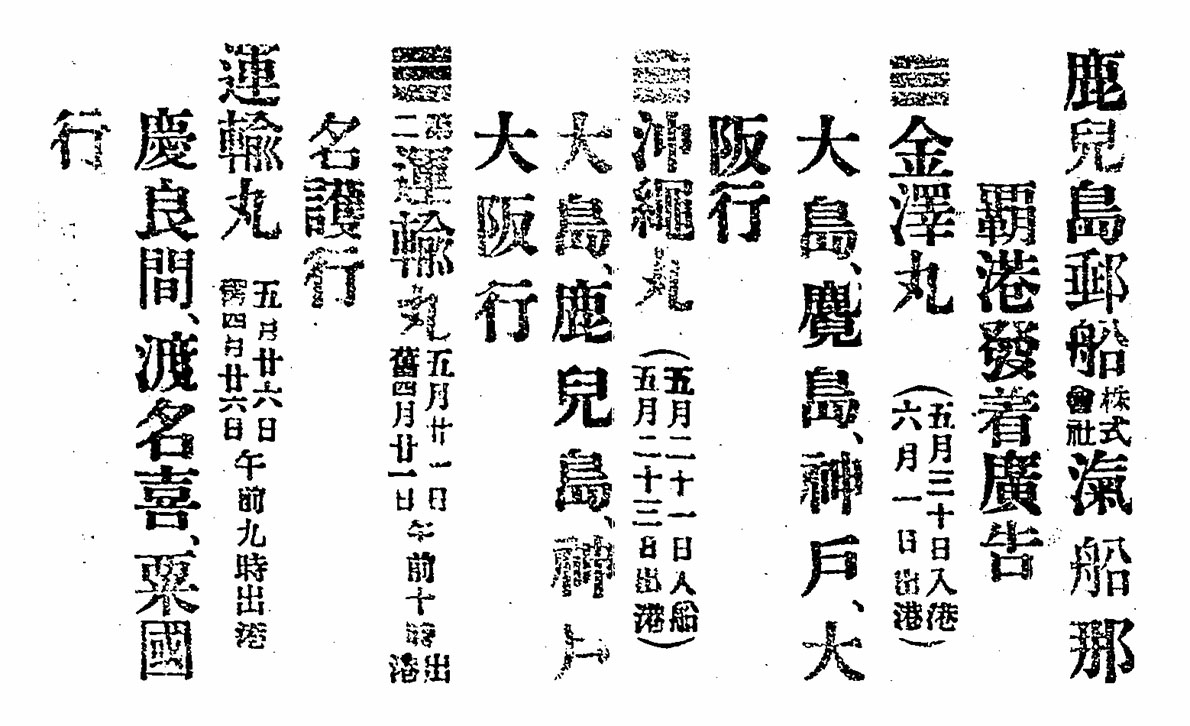 鹿兒島郵船株式會社滊船那
覇港發着廣告
金澤丸（五月三十日入港六月一日出港）
大島、麑島、神戶、大
阪行
沖繩丸（五月二十一日入船五月二十三日出港）
大島、鹿兒島、神戶
大阪行
第二運輸丸五月廿一日舊四月廿一日午前十時出港
名護行
運輸丸五月廿六日舊四月廿六日午前九時出港
慶良間、渡名喜、粟國
行